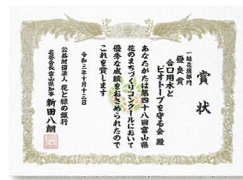 賞状
一般花壇部門
優良賞
合口用水と
ビオトープを守る会 殿
あなたがたは第四十八回富山県
花のまちづくりコンクールにおいて
優秀な成績をおさめられたので
これを賞します
令和三年十月十三日
公益財団法人 花と緑の銀行
新田八朗